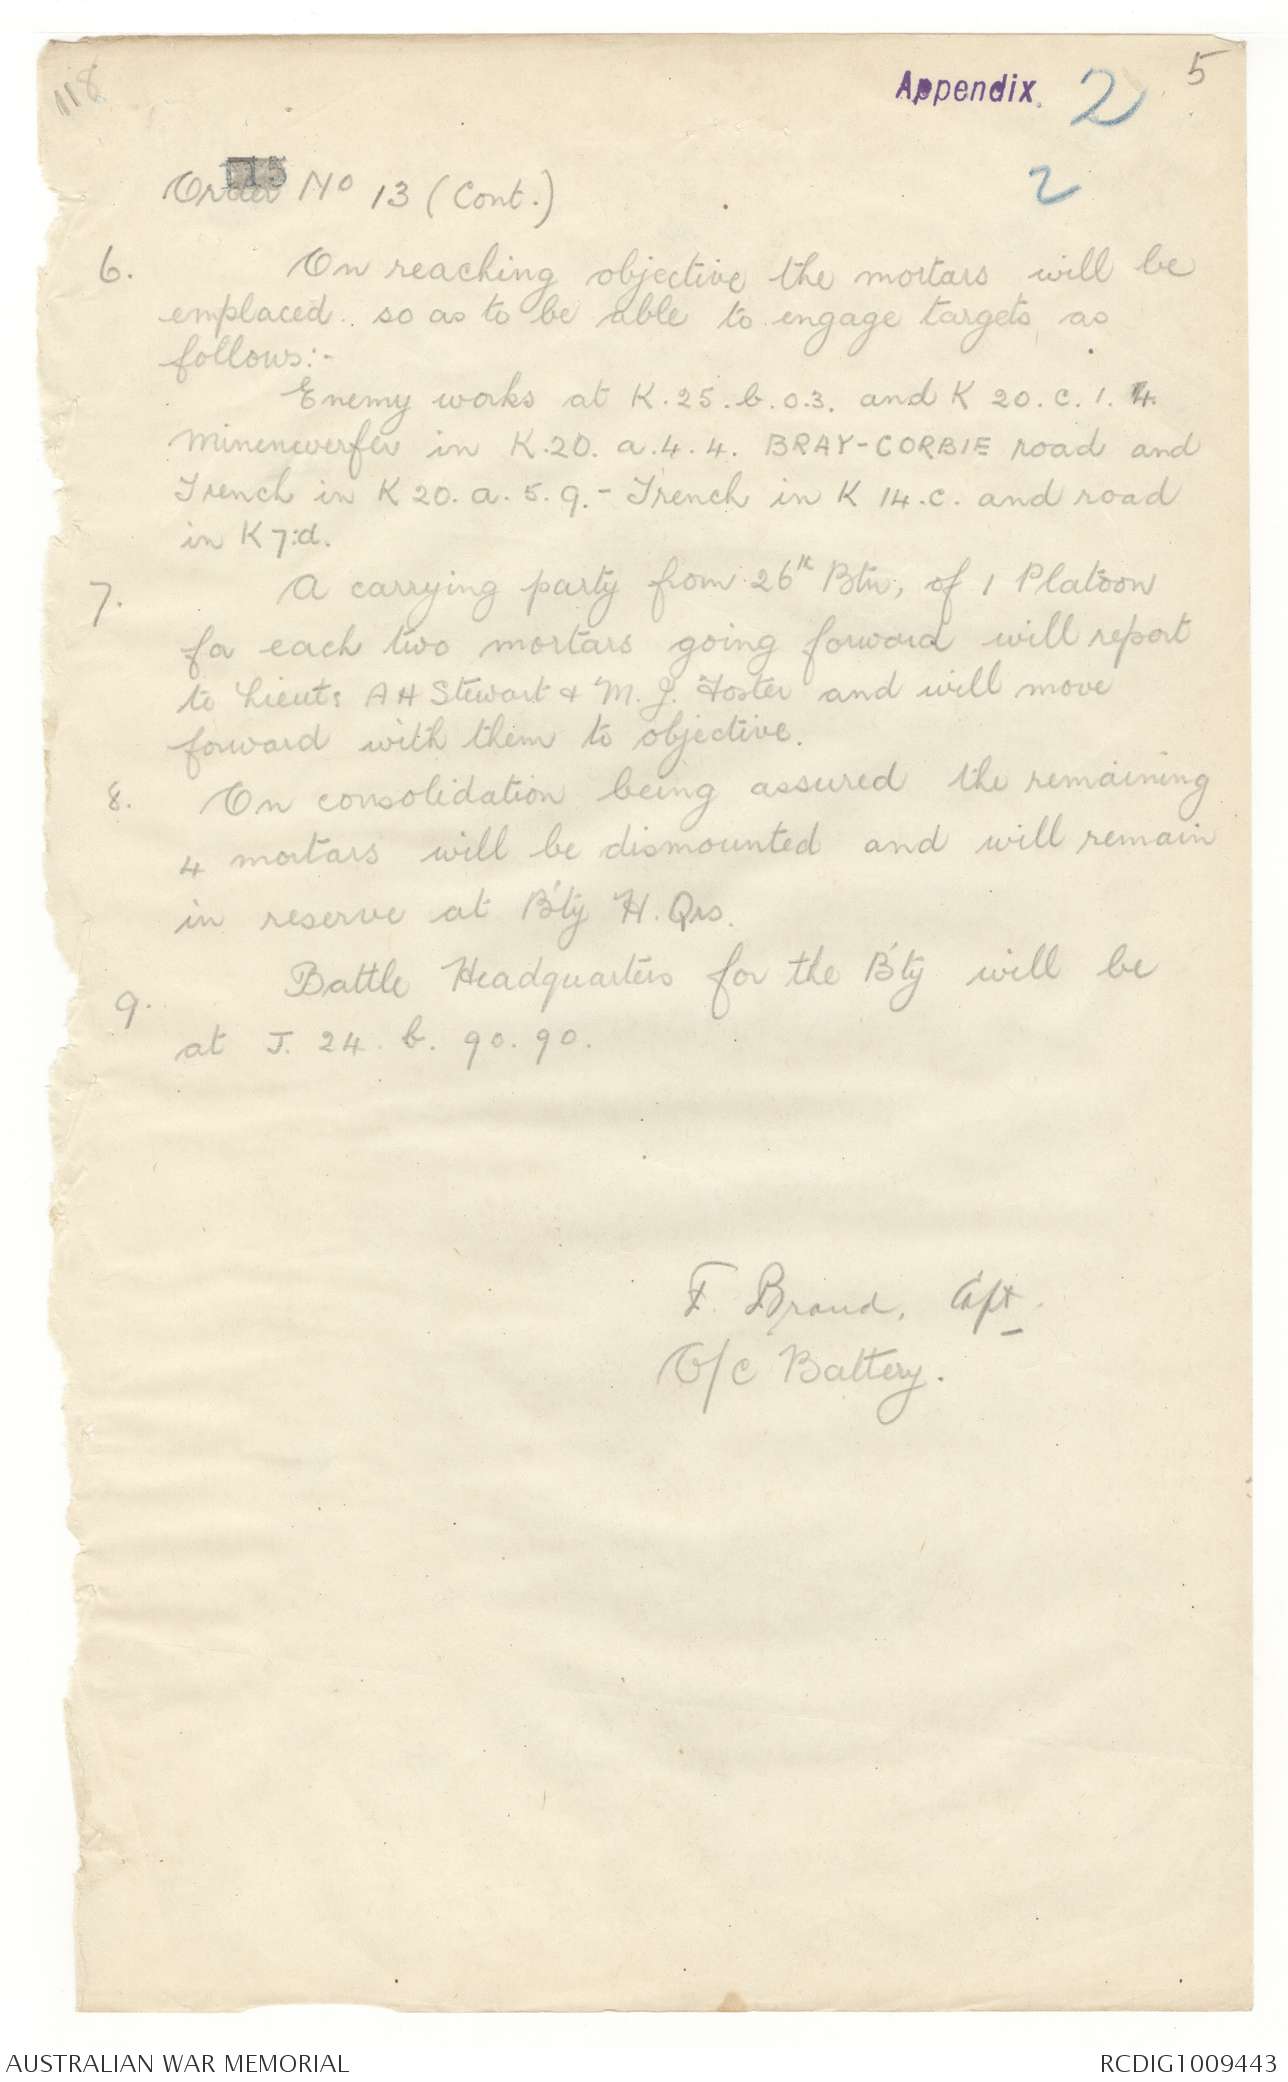 118
Appendix. 2 5
2
115
Order No 13 (Cont.)
6. On reaching objective the mortars will be
emplaced so as to be able to engage targets as
follows:-
Enemy works at K.25.b.0.3. and K 20.c.1.4.
Minenwerfer in K.20.a.4.4. BRAY-CORBIE road and
Trench in K 20.a.5.9.- Trench in K 14.c. and road
in K 7:d.
7. A carrying party from 26th Btn, of 1 Platoon
for each two mortars going forward will report
to Lieuts A H Stewart & M. J. Foster and will move
forward with them to objective.
8. On consolidation being assured the remaining
4 mortars will be dismounted and will remain
in reserve at B'ty H. Qrs.
9. Battle Headquarters for the B'ty will be
at J. 24. b. 90. 90.
F. Braud, Capt.
O/c Battery.
AUSTRALIAN WAR MEMORIAL RCDIG1009443